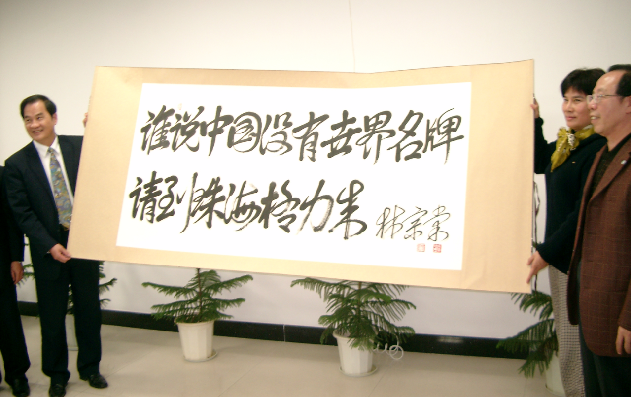 谁说中国没有世界名牌
请到珠海格力来
林宗棠